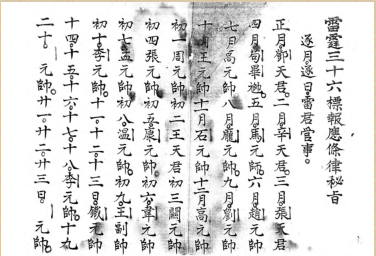 雷霆三十六標報應條律秘旨
逐月逐日雷君官事。
正月鄧天君。二月辛天君。三月張天君
四月苟畢 五月馬元帥。六月趙元帥
七月高元帥八月龐元帥。九月劉元帥
十月王元帥十一月石元帥十二月高元帥
初一周元帥初二王天君初三關元帥
初四張元帥初五康元帥。初六韋元帥
初七孟元帥初八溫元帥。初九王副帥
初十李元帥。十一十二十三日。鐵元帥
十四。十五。十六。十七十八李元帥。十九
二十。 元帥。廿一。廿二。廿三日 元帥。